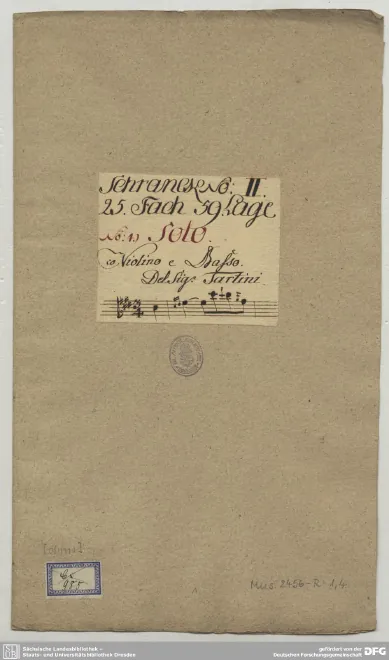 Schranck No: II.
25. Fach 59. Lage
No: 13 Solo.
co Violino e Basso.
Del Sigr. Tartini
Mus. 2456-R-1,4
Sächsische Landesbibliothek –
Staats- und Universitätsbibliothek Dresden
gefördert von der
Deutschen Forschungsgemeinschaft
DFG